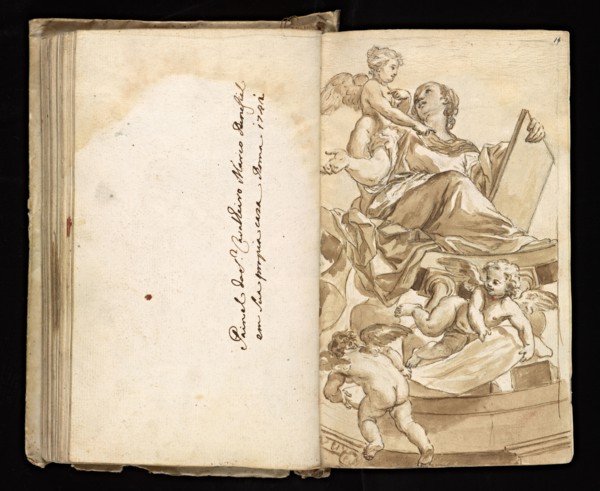 Painel do S.r Cavalheiro Marco Benefiel
em sua propria casa Roma 1742
19